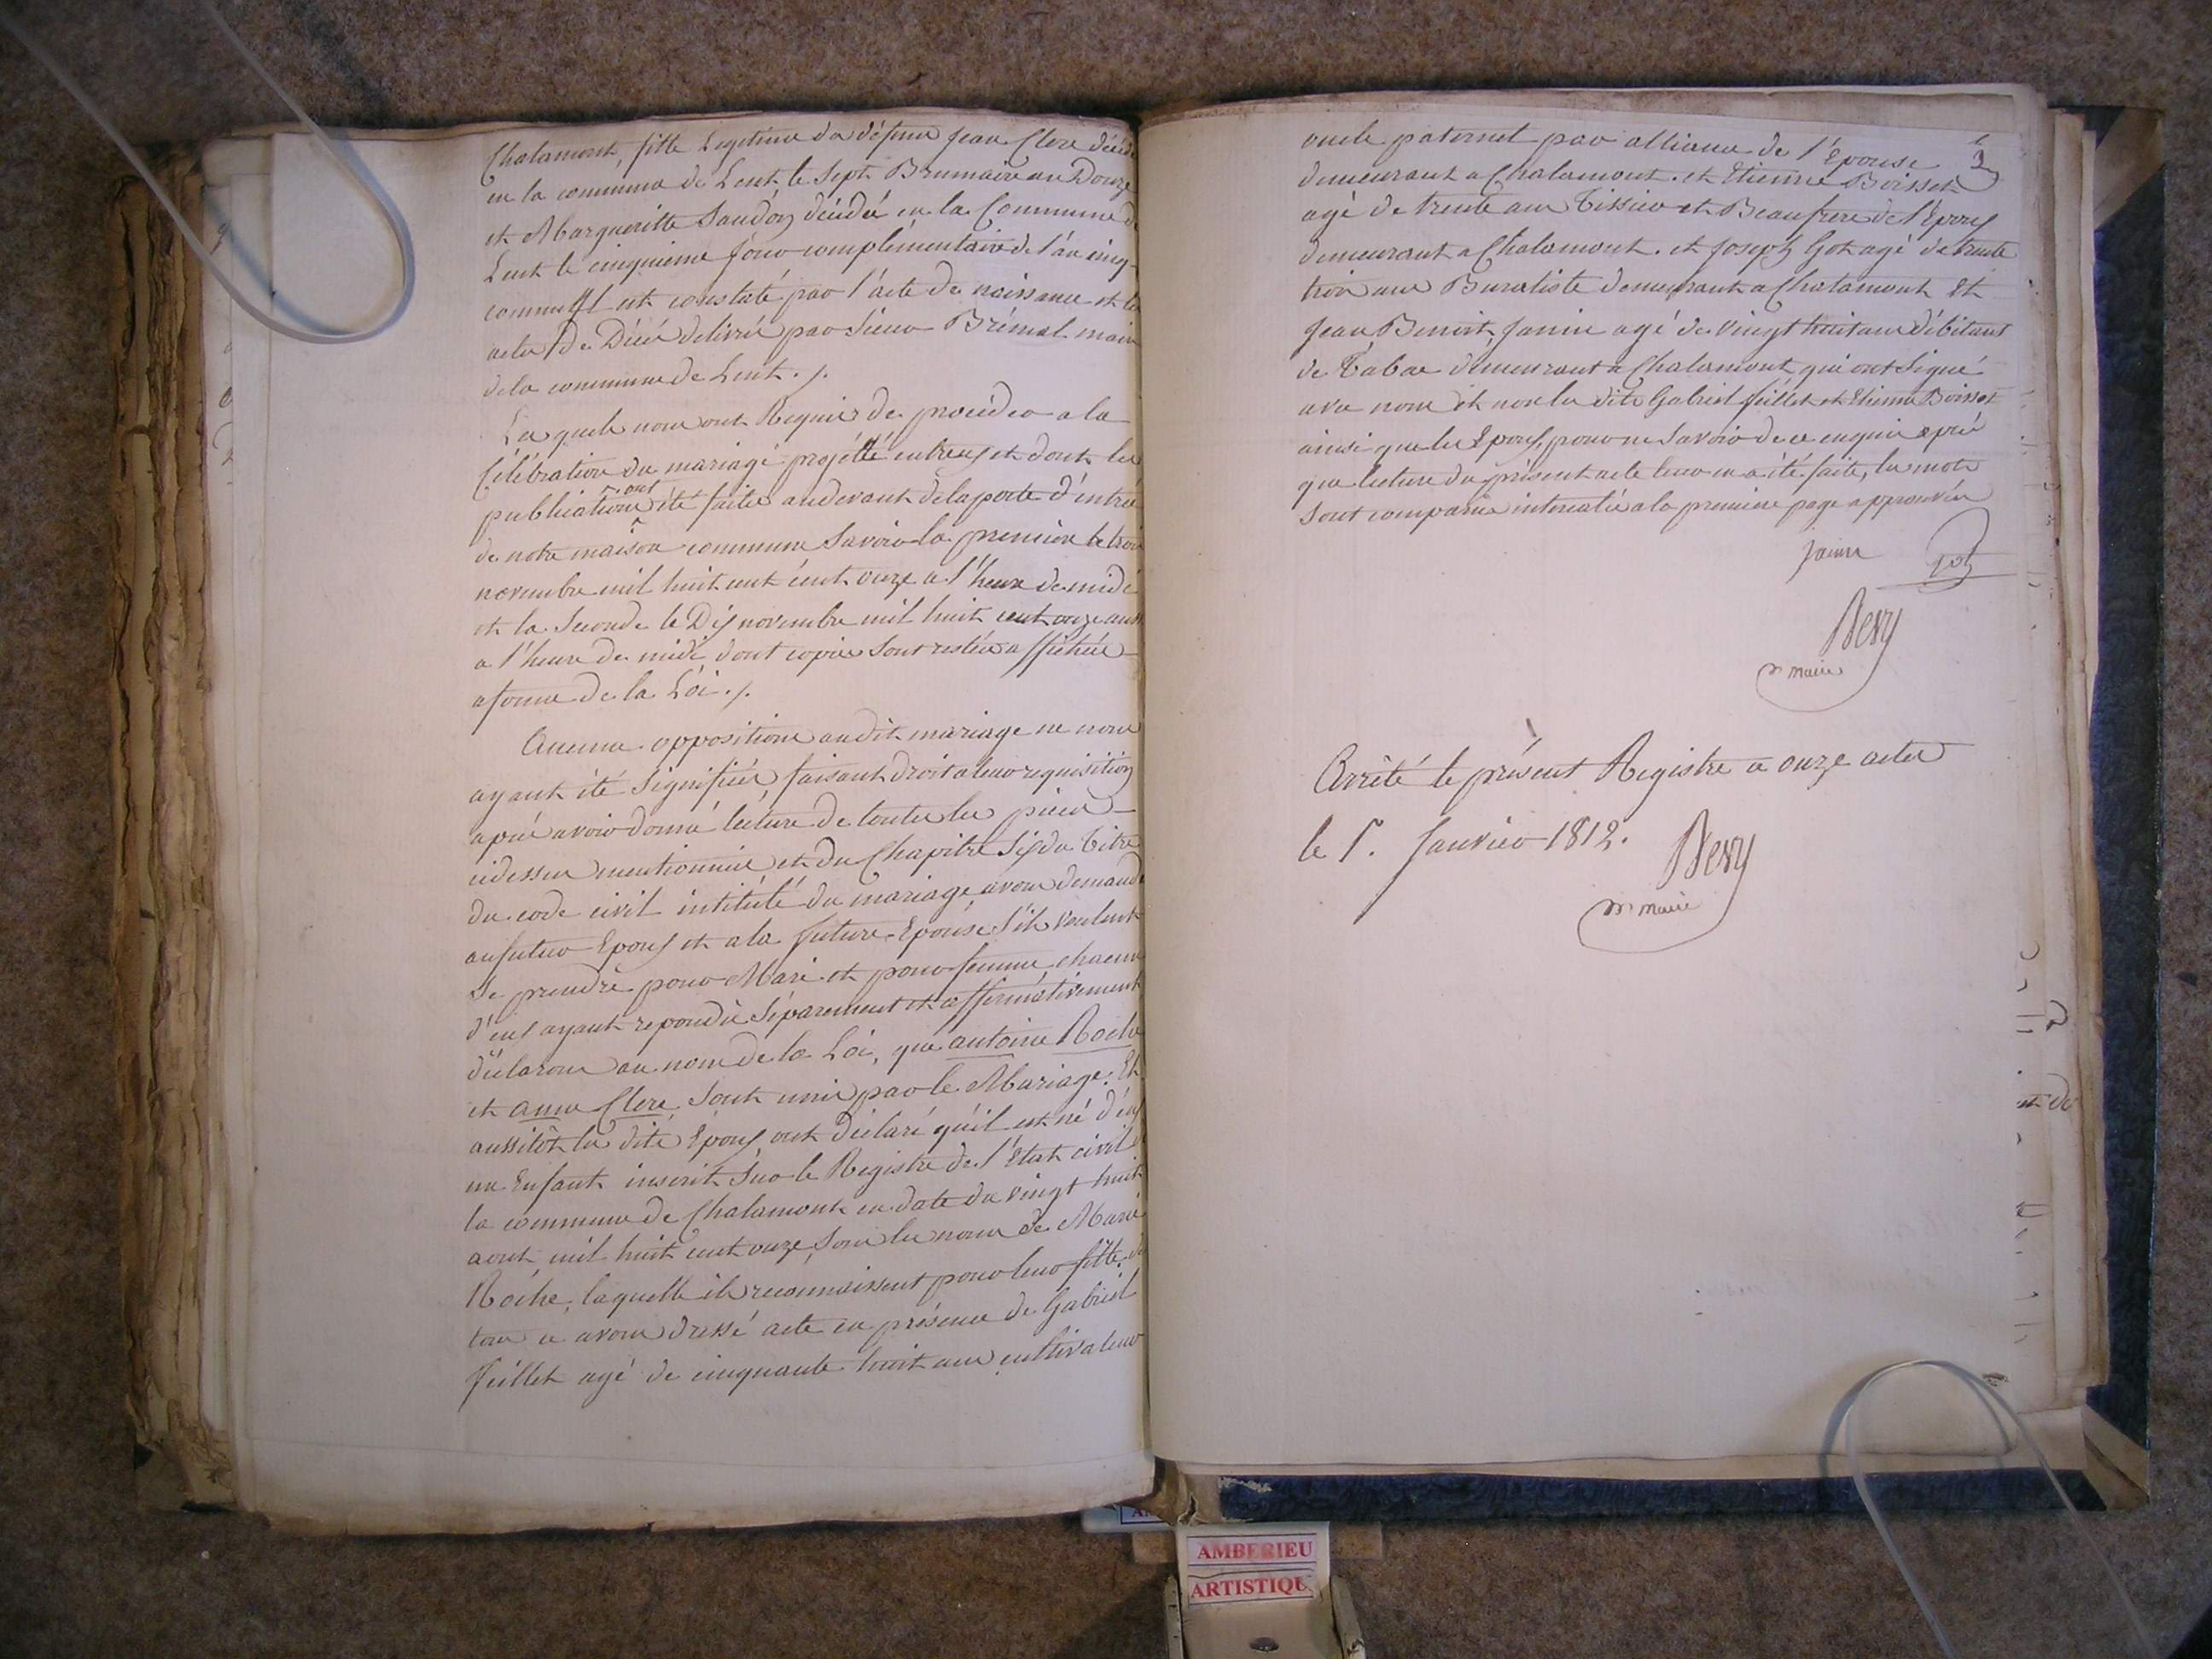 Chalamont, fille Legitime de défunt Jean Clerc décédé
en la commune de Lent, le Sept Brumaire an Douze
et Margueritte Saudon décédé en la Commune de
Lent le cinquieme jour complémentaire de l'an cinq
comme Il est constaté par l'acte de naissance et les
actes de Décès délivrés par Sieur Brémal maire
de la commune de Lent ./.
Les quels nous ont Requis de procéder a la
Célébration du mariage projétté entreux et dont les
publications ont été faites audevant de la porte d'entrée
de notre maison commune Savoir la premiere le trois
novembre mil huit cent cent onze a l'heure de midi
et la Seconde le Dix novembre mil huit cent onze aussi
a l'heure de midi, dont copies Sont restées affichées
a forme de la Loi ./.
Aucunes oppositions audit mariage ne nous
ayant été Signifiées, faisant droit a leur requisition
aprés avoir donné lecture de toutes les pieces
cidessus mentionnées et du Chapitre Six du Titre
du code civil intitulé du mariage, avons demandé
au futur Epoux et a la future Epouse S'ils veulent
Se prendre pour Mari et pour femme chacun
d'eux ayant repondu Séparement et affirmativement
déclarons au nom de la Loi, que antoine Roche
et anne Clerc Sont unis par le Mariage. Et
aussitôt les dits Epoux ont déclaré qu'il est né d'eux
un Enfant inscrit Sur le Registre de l'Etat civil de
la commune de Chalamont en date du vingt huit
aout mil huit cent onze, Sous les noms de Marie
Roche, laquelle ils reconnaissent pour leur fille. de
tous ce avons dressé acte en présence de Gabriel
Juillet agé de cinquante huit ans cultivateur
oncle paternel par alliance de l'Epouse
demeurant a Chalamont. et Etienne Boisset
agé de trente ans Tissier et Beaufrere de l'Epoux
demeurant a Chalamont. et Joseph Got agé de trente
trois ans Buraliste demeurant a Chalamont Et
Jean Benoit Janin agé de vingt huit ans débitant
de Tabac demeurant a Chalamont qui ont Signé
avec nous et non les dits Gabriel Juillet et Etienne Boisset
ainsi que les Epoux, pour ne Savoir de ce enquis aprés
que lecture du présent acte leur en a été faite, les mots
Sont comparus intercalés a la premiere page approuvés
Janin Got
Nevy
maire
Arrêté le présent Registre a onze actes
le 1er. Janvier 1812. Nevy
maire
AMBERIEU
ARTISTIQU